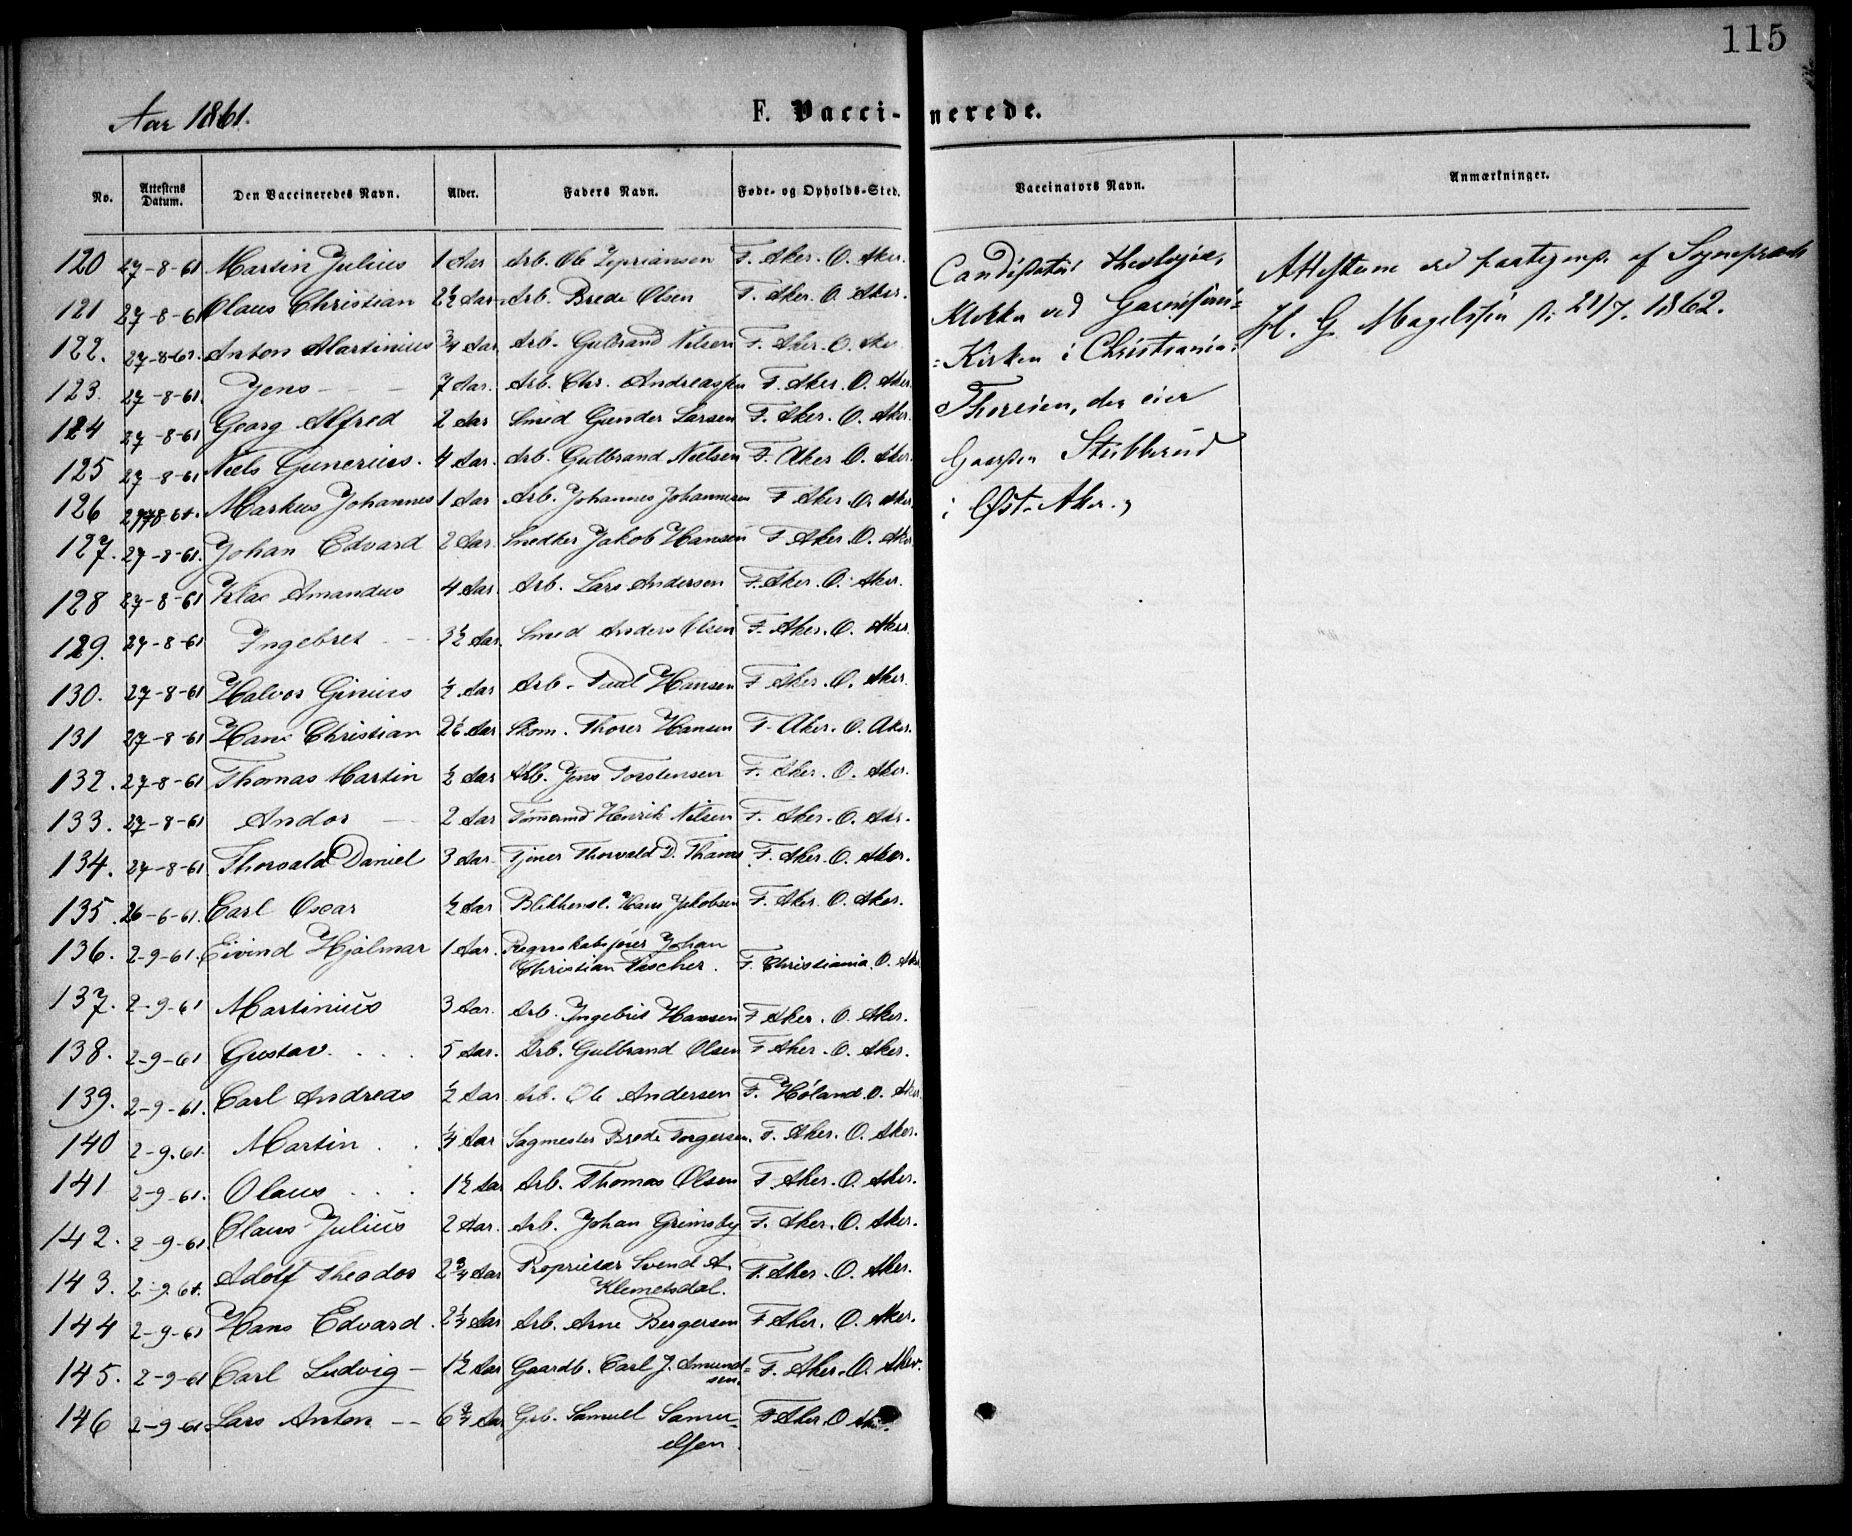 115
Aar 1861.
F. Vaccinerede.
No. Attestens Datum. Den Vaccineredes Navn. Alder. Faders Navn. Føde- og Opholds-Sted. Vaccinators Navn. Anmærkninger.
120 27-8-61 Martin Julius 1 Aar Arb. Ole Zepriansen F. Aker. O. Aker.
121 27-8-61 Olaus Christian 2½ Aar Arb. Brede Olsen F. Aker. O. Aker.
122. 27-8-61. Anton Martinius ¾ Aar Arb. Gulbrand Nilsen F. Aker. O. Aker
123. 27-8-61. Jens 7 Aar. Arb. Chr. Andreassen F. Aker. O. Aker
124 27-8-61 Georg Alfred 2 Aar Smed Gunder Larsen F. Aker. O. Aker.
125 27-8-61 Niels Gunerius. 4 Aar. Arb. Gulbrand Nielsen F. Aker O. Aker.
126 27-8-61. Markus Johannes 1 Aar Arb. Johannes Johannesen F Aker O. Aker
127. 27-8-61. Johan Edvard 2 Aar. Snedker Jakob Hansen F Aker. O. Aker
128 27-8-61 Amandus 4 Aar. Arb. Lars Andersen F. Aker. O. Aker.
129. 27-8-61 Ingebret 3½ Aar. Smed Anders Olsen F. Aker. O. Aker
130. 27-8-61 Halvor Ginius ½ Aar Arb. Paul Hansen F Aker. O. Aker.
131 27-8-61 Hans Christian 2½ Aar Skom. Thorer Hansen F. Aker. O. Aker.
132. 27-8-61 Thomas Martin ½ Aar Arb. Jens Torstensen F. Aker. O. Aker.
133. 27-8-61 Andor 2 Aar Tømmermd Henrik Nilsen F. Aker. O. Aker.
134. 27-8-61 Thorvald Daniel 3 Aar. Tjener Thorvald D. F. Aker. O. Aker.
135. 26-6-61. Carl Oscar ½ Aar Blikkensl. Hans Jakobsen F. Aker. O. Aker.
136. 2-9-61. Eivind Hjalmar 1 Aar. Regnskabsfører Johan
Christian Fascher. F. Christiania. O. Aker
137. 2-9-61 Martinius 3 Aar. Arb. Ingebrit Hansen F Aker. O. Aker.
138. 2-9-61 Gustav. . . 5 Aar. Arb. Gulbrand Olsen F Aker. O. Aker.
139. 2-9-61. Carl Andreas ½ Aar Arb. Ole Andersen F. Høland. O. Aker
140 2-9-61. Martin . . ¼ Aar Sagmester Brede Torgersen. F. Aker. O. Aker.
141 2-9-61. Olaus . . . 1½ Aar Arb. Thomas Olsen F. Aker. O. Aker.
142. 2-9-61. Olaus Julius 2 Aar. Arb. Johan Grimsby F. Aker. O. Aker.
143. 2-9-61. Adolf Theodor 2¾ Aar Proprietær Svend A.
Klemetsdal. F. Aker. O. Aker.
144 2-9-61 Hans Edvard. 2¼ Aar Arb. Arne Bergersen F Aker. O. Aker.
145. 2-9-61 Carl Ludvig – 1½ Aar Gaardb. Carl J. Amund=
sen. F. Aker. O. Aker.
146 2-9-61 Lars Anton -- 6¾ Aar Grb. Samuel Samu-
elsen. F Aker. O
Candidatus theologiæ,
Klokker ved Garnisons=
=Kirken i Christiania:
der eier
Gaarden Stubberud
i Øst-Aker.,
af Sogneprest
H. G. Magelssen 21/7. 1862.